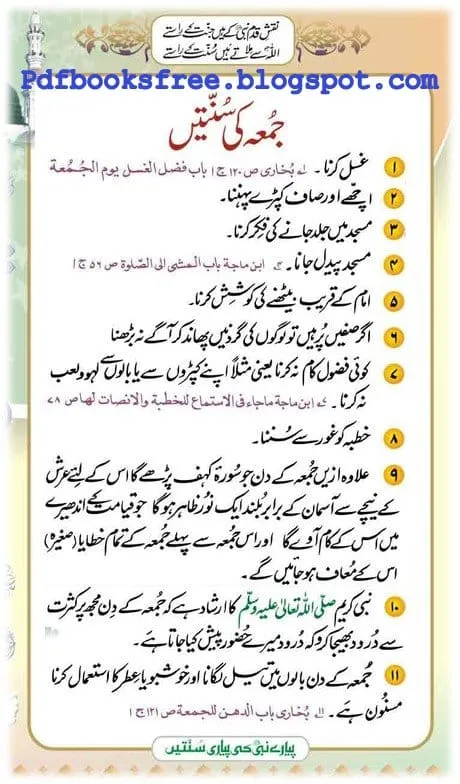 نقش قدم نبیؐ کے ہیں جنّت کے راستے
اللہ سے ملاتے ہیں سُنّت کے راستے
Pdfbooksfree.blogspot.com
جُمعہ کی سُنّتیں
۱ غسل کرنا۔ بُخاری ص ۱۲۰ ج ۱ باب فضل الغسل یوم الجُمعة
۲ اچھے اور صاف کپڑے پہننا۔
۳ مسجد میں جلد جانے کی فِکر کرنا۔
۴ مسجد پیدل جانا۔ ابن ماجة باب المشی الی الصّلوة ص ۵۶ ج ۱
۵ امام کے قریب بیٹھنے کی کوشش کرنا۔
۶ اگر صفیں پُر ہیں تو لوگوں کی گردنیں پھاند کر آگے نہ بڑھنا
۷ کوئی فضول کام نہ کرنا یعنی مثلاً اپنے کپڑوں سے یا بالوں سے لہو و لعب
نہ کرنا۔ ابن ماجة ماجاء فی الاستماع للخطبة والانصات لها ص ۷۸
۸ خطبہ کو غور سے سُننا۔
۹ علاوہ ازیں جُمعہ کے دن جو سُورۂ کہف پڑھے گا اس کے لئے عرش
کے نیچے سے آسمان کے برابر بُلند ایک نُور ظاہر ہوگا جو قیامت کے اندھیرے
میں اس کے کام آوے گا اور اس جُمعہ سے پہلے جُمعہ کے تمام خطایا (صغیرہ)
اس کے مُعاف ہو جائیں گے۔
۱۰ نبی کریم صلّی اللہ تعالیٰ علیہ وسلّم کا ارشاد ہے کہ جُمعہ کے دِن مجھ پر کثرت
سے دُرود بھیجا کرو کہ دُرود میرے حُضور پیش کیا جاتا ہے۔
۱۱ جُمعہ کے دن بالوں میں تیل لگانا اور خوشبو یا عِطر کا استعمال کرنا
مسنُون ہے۔ بُخاری باب الدهن للجمعة ص ۱۲۱ ج ۱
پیارے نبیؐ کی پیاری سُنّتیں